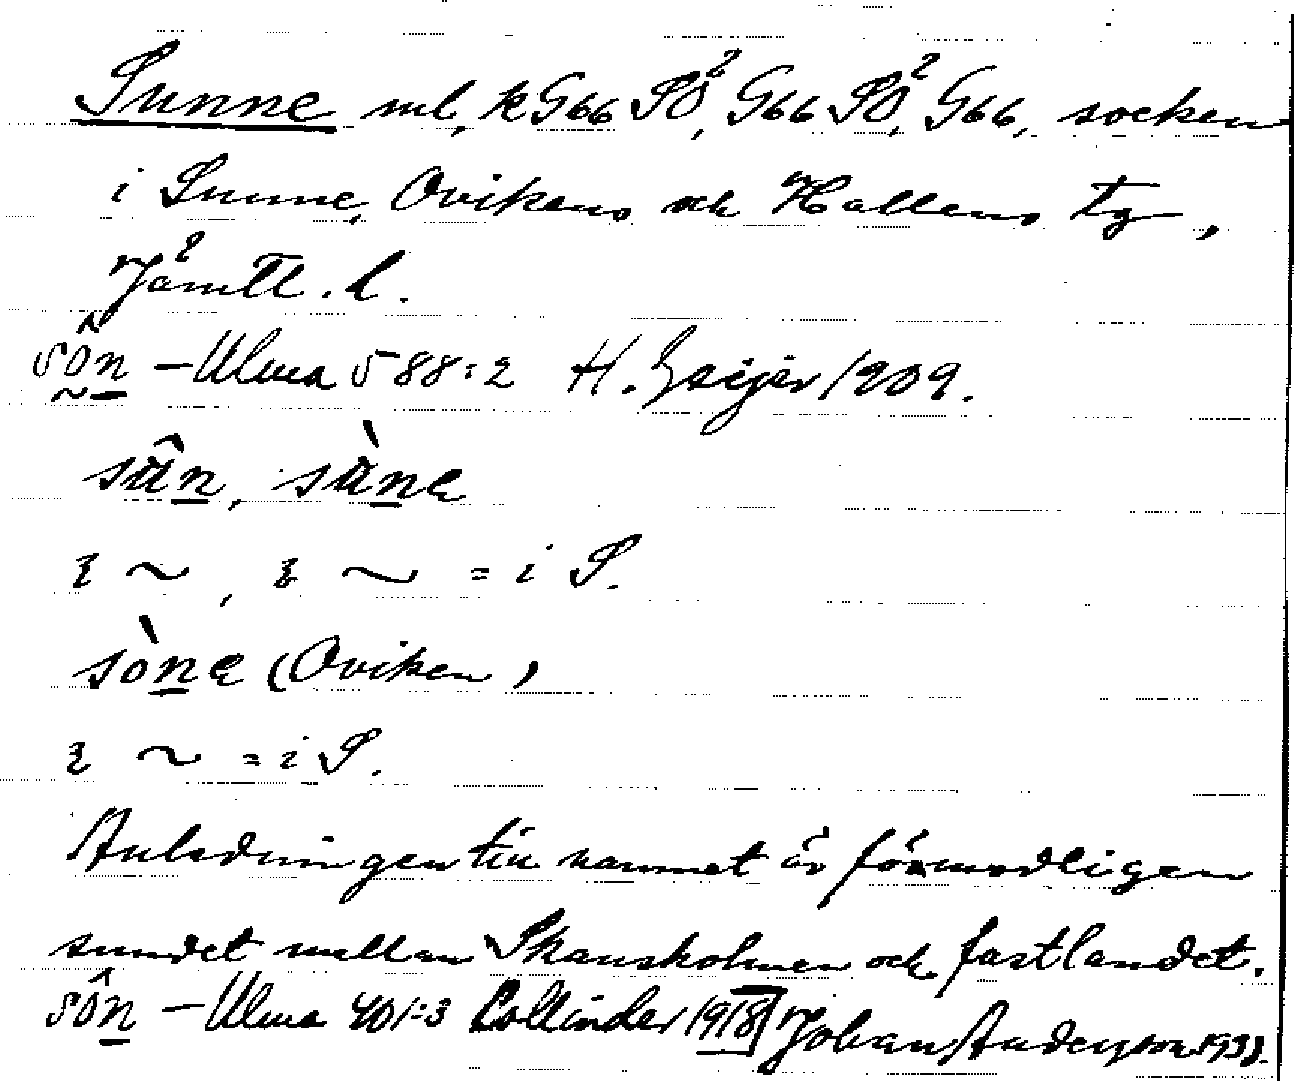 Sunne ml, kG66 SÖ, G66 SÖ, G66, socken
i Sunne, Ovikens och Hallens tg,
Jämtl. l.
sôn – Ulma 588:2 H. Geijer 1909.
sân, sàne
i S.
sòne (Oviken)
i S.
Anledningen till namnet är förmodligen
sundet mellan Skansholmen och fastlandet.
sôn – Ulma 401:3 Collinder 1918 Johan Anderson 193